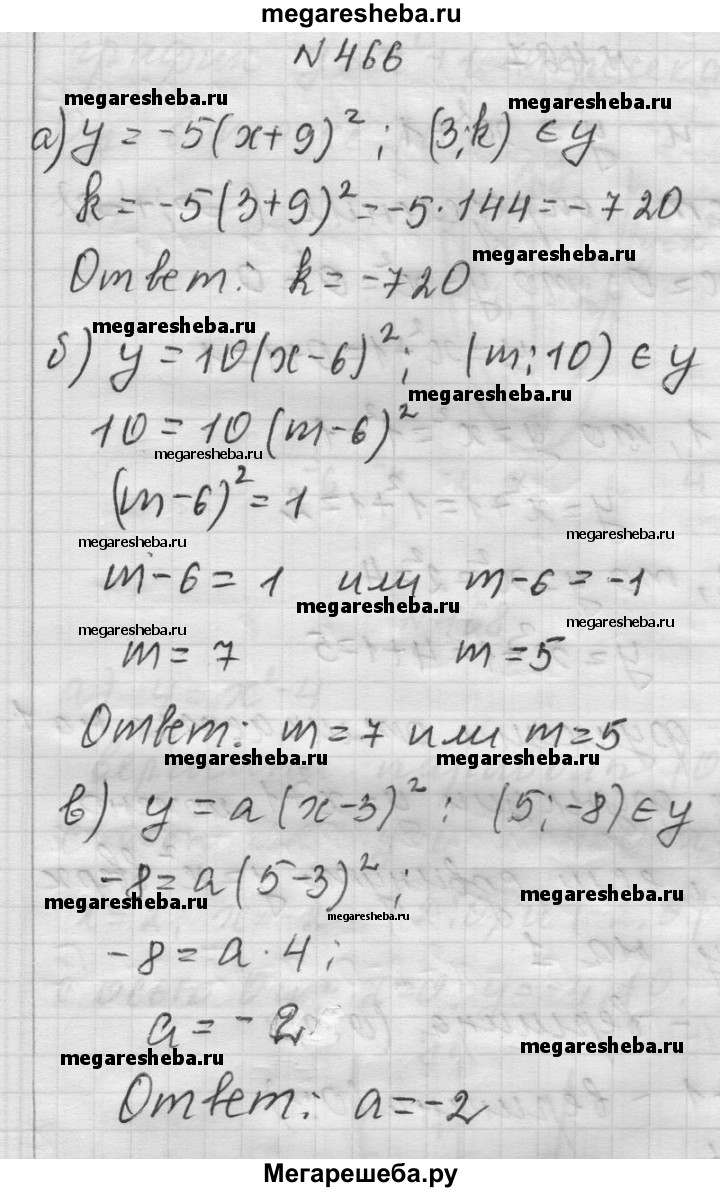 megaresheba.ru
№466
megaresheba.ru megaresheba.ru
а) y = -5(x+9)²; (3;k) ∈ y
k = -5(3+9)² = -5·144 = -720
megaresheba.ru
Ответ: k = -720
megaresheba.ru
б) y = 10(x-6)²; (m;10) ∈ y
megaresheba.ru
10 = 10(m-6)²
megaresheba.ru
(m-6)² = 1
megaresheba.ru megaresheba.ru
m-6 = 1 или m-6 = -1
megaresheba.ru
megaresheba.ru megaresheba.ru
m = 7 m = 5
Ответ: m = 7 или m = 5
megaresheba.ru megaresheba.ru
в) y = a(x-3)²; (5;-8) ∈ y
-8 = a(5-3)²;
megaresheba.ru megaresheba.ru
megaresheba.ru
-8 = a·4;
a = -2
megaresheba.ru megaresheba.ru
Ответ: a = -2
Мегарешеба.ру